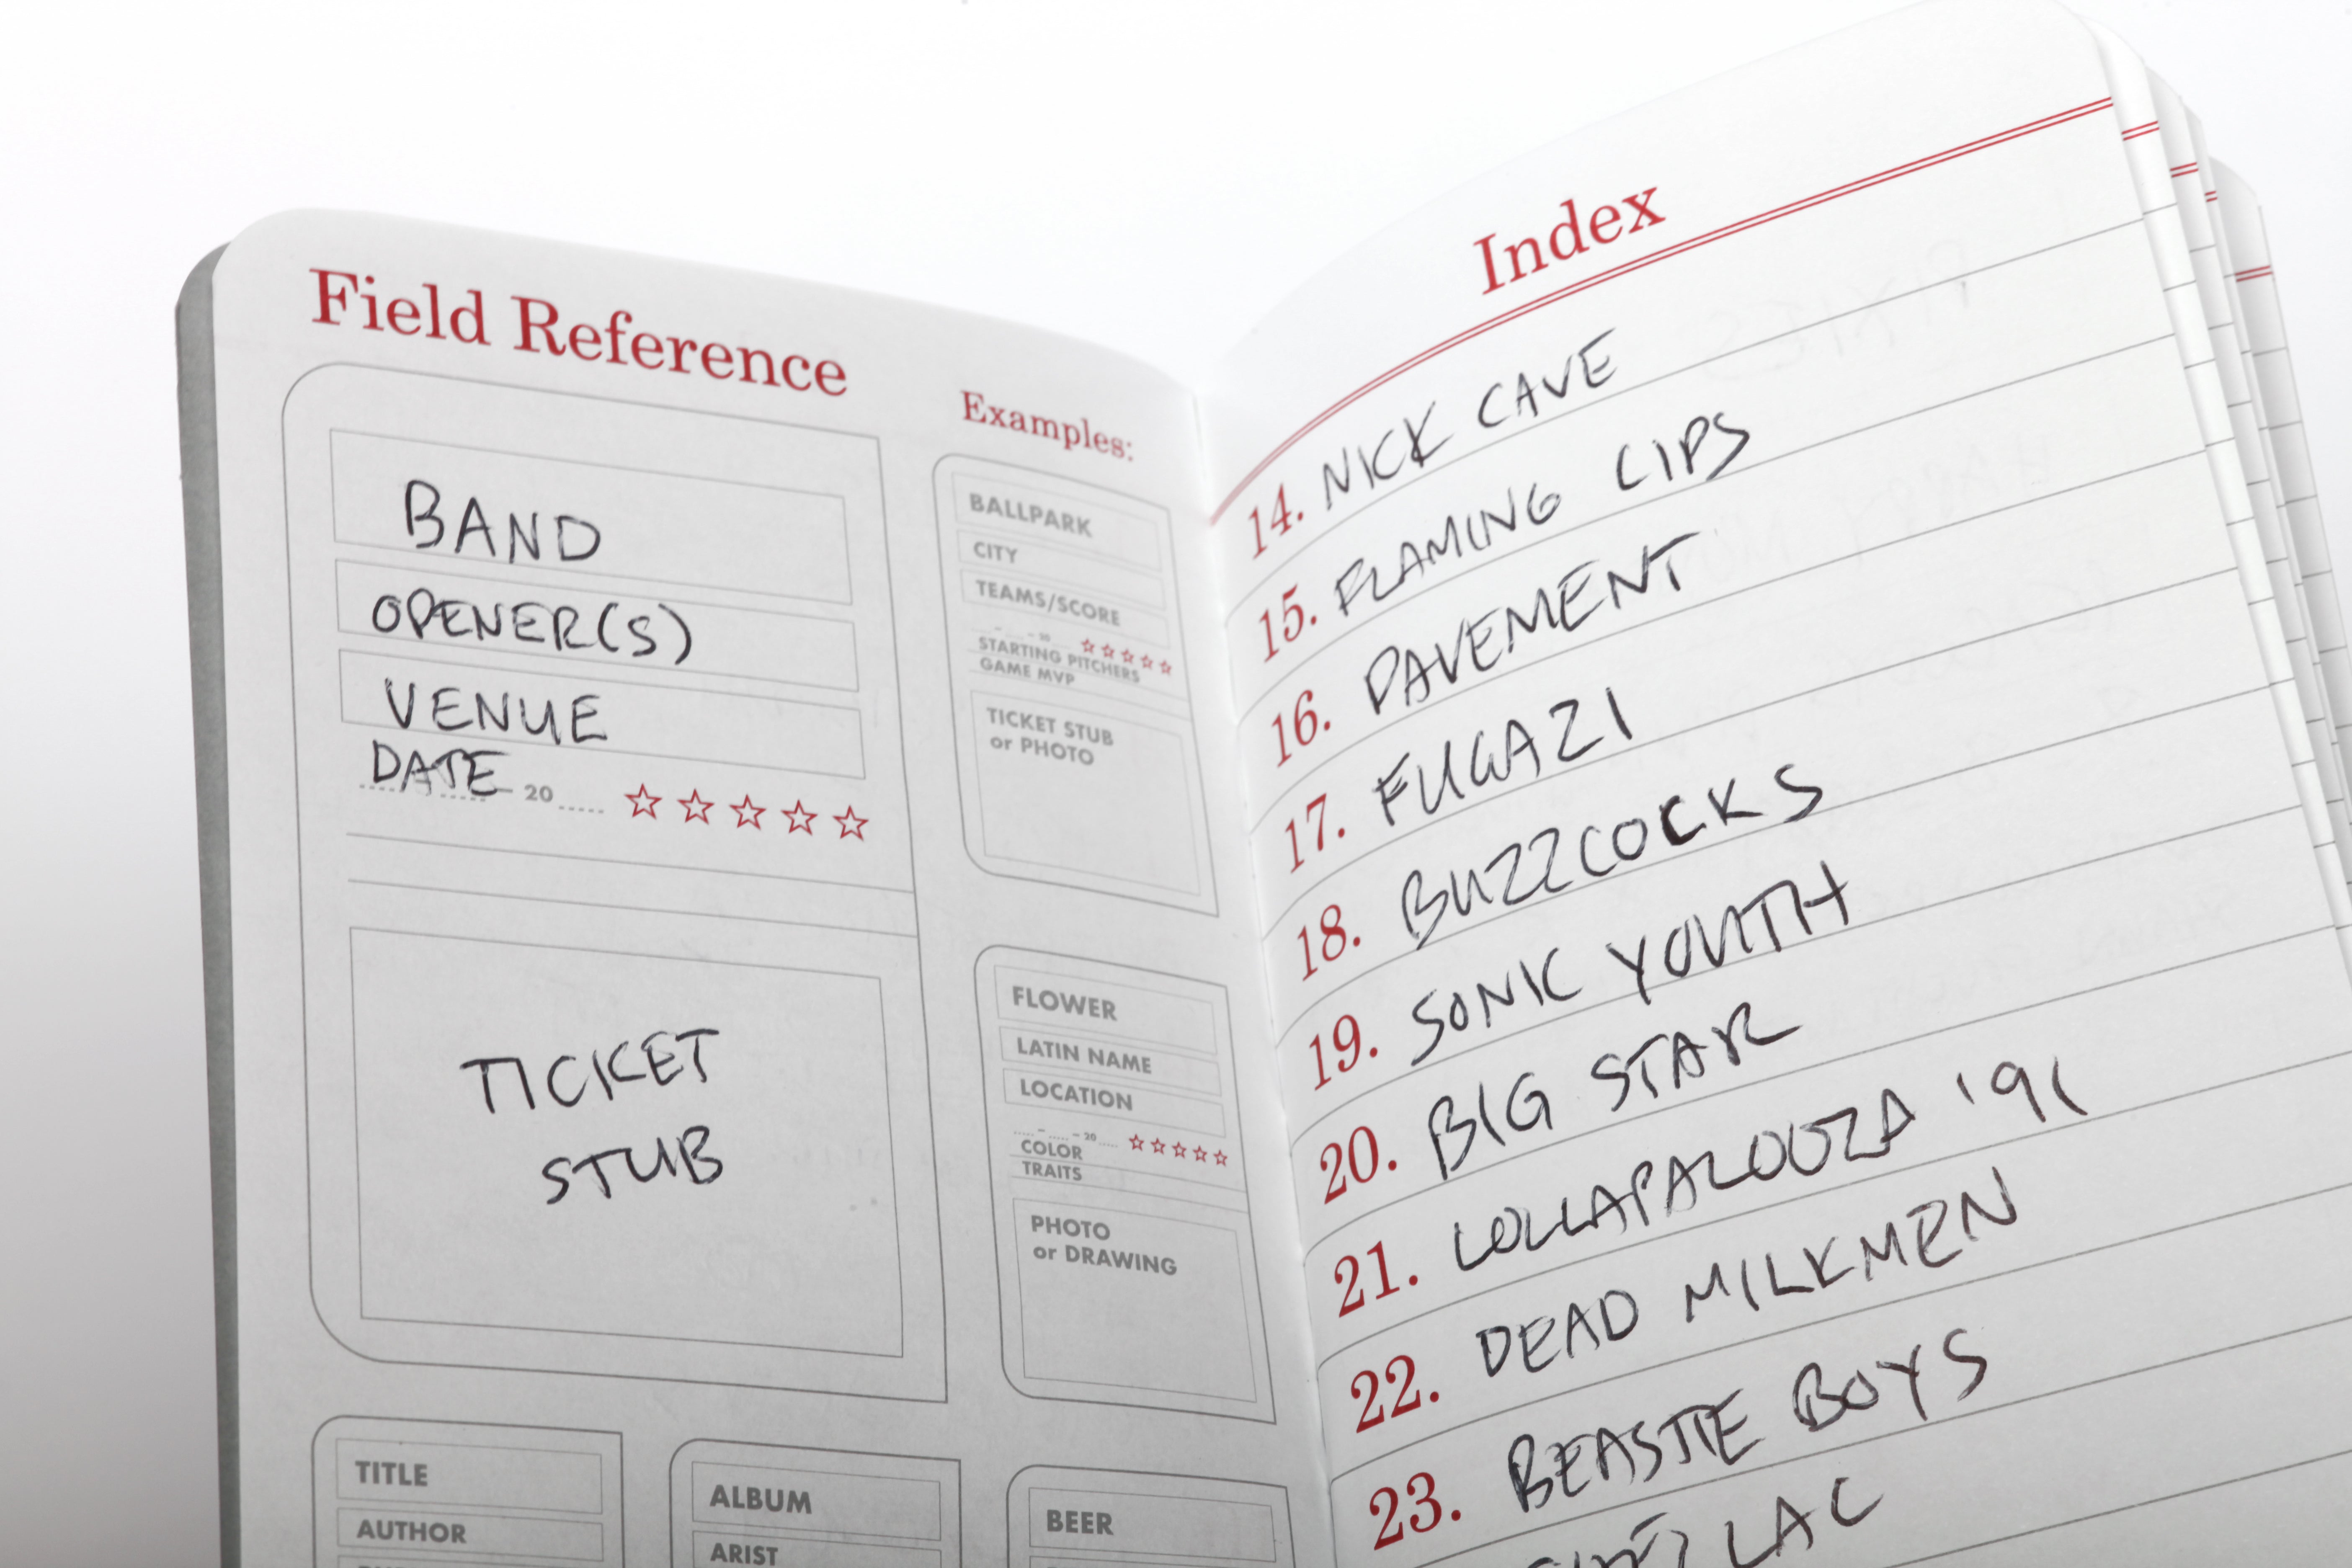 Field Reference
BAND
OPENER(S)
VENUE
DATE
– 20
TICKET
STUB
Examples:
BALLPARK
CITY
TEAMS/SCORE
– – 20
STARTING PITCHERS
GAME MVP
TICKET STUB
or PHOTO
FLOWER
LATIN NAME
LOCATION
– – 20
COLOR
TRAITS
PHOTO
or DRAWING
TITLE
AUTHOR
ALBUM
ARIST
BEER
Index
14. NICK CAVE
15. FLAMING LIPS
16. PAVEMENT
17. FUGAZI
18. BUZZCOCKS
19. SONIC YOUTH
20. BIG STAR
21. LOLLAPALOOZA '91
22. DEAD MILKMEN
23. BEASTIE BOYS
LAC